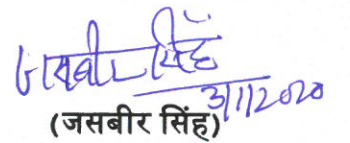 जसबीर सिंह
3/1/2020
(जसबीर सिंह)